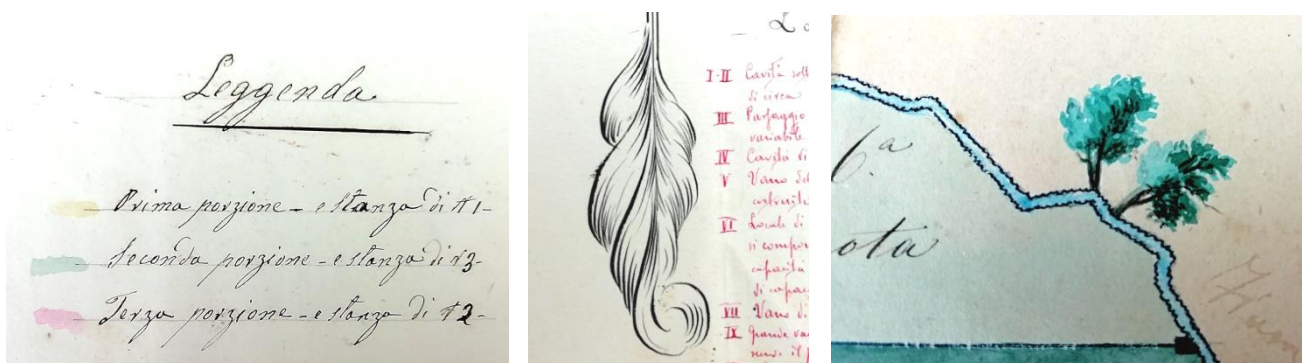 Leggenda
Prima porzione - e stanza di N 1-
Seconda porzione - e stanza di N 3-
Terza porzione - e stanza di N 2-
I-II Cavità sott
di circa
III Passaggio
variabile
IV Cavità
V Vano
costruito
VI Locale di
si compon
capacità
di capac
VII Vano di
IX Grande va
6ª
ota